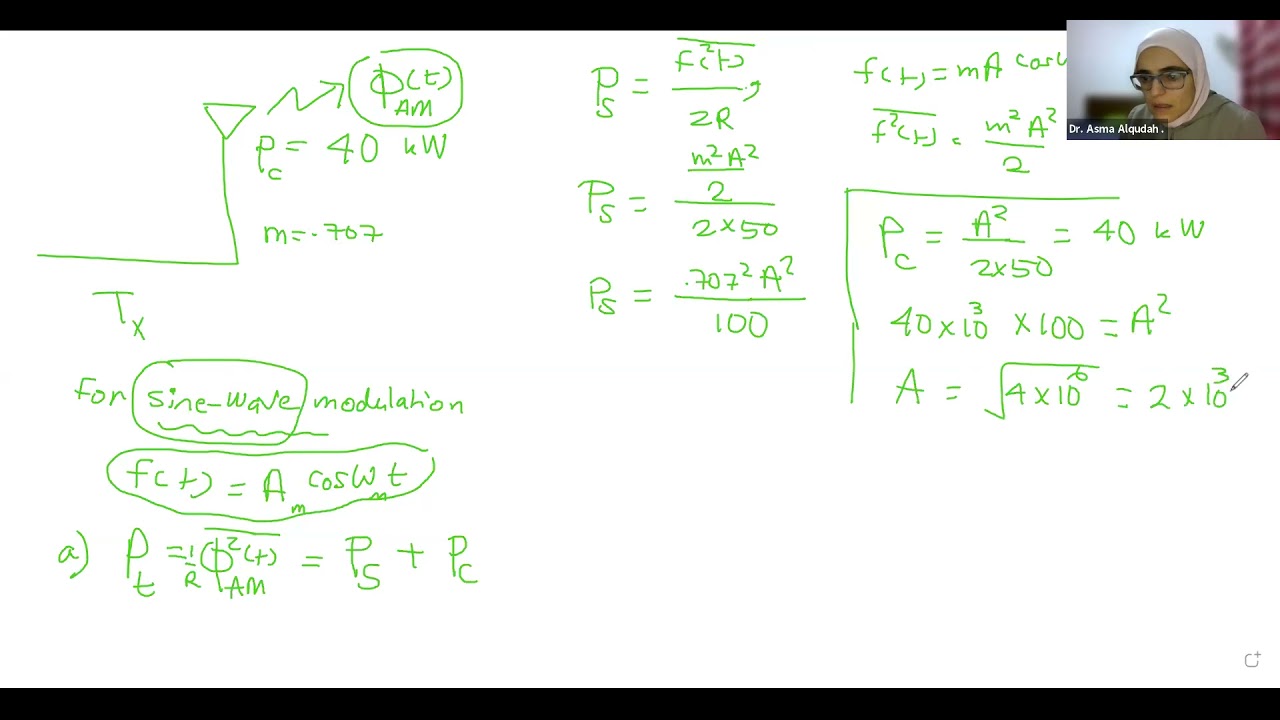 Φ_AM(t)
P_c = 40 kW
m = .707
T_x
For sine-wave modulation
f(t) = A_m cos ω_m t
a) P_t = 1/R \overline{Φ²_AM(t)} = P_S + P_C
P_S = \overline{f²(t)} / 2R
P_S = (m²A²/2) / (2×50)
P_S = .707² A² / 100
f(t) = mA cos
\overline{f²(t)} = m²A² / 2
P_C = A² / (2×50) = 40 kW
40×10³ ×100 = A²
A = √(4×10⁶) = 2×10³
Dr. Asma Alqudah .